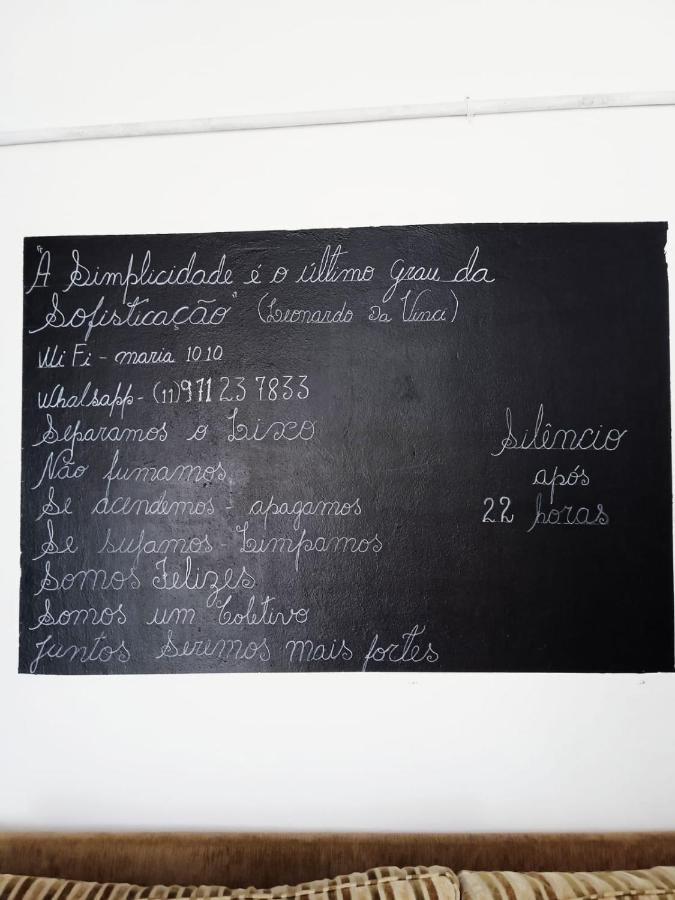 "A Simplicidade é o último grau da
Sofisticação" (Leonardo Da Vinci)
Wi Fi - maria 1010
Whatsapp - (11) 971237833
Separamos o Lixo
Não fumamos
Se acendemos - apagamos
Se sujamos - Limpamos
Somos Felizes
Somos um Coletivo
Juntos Seremos mais fortes
Silêncio
após
22 horas